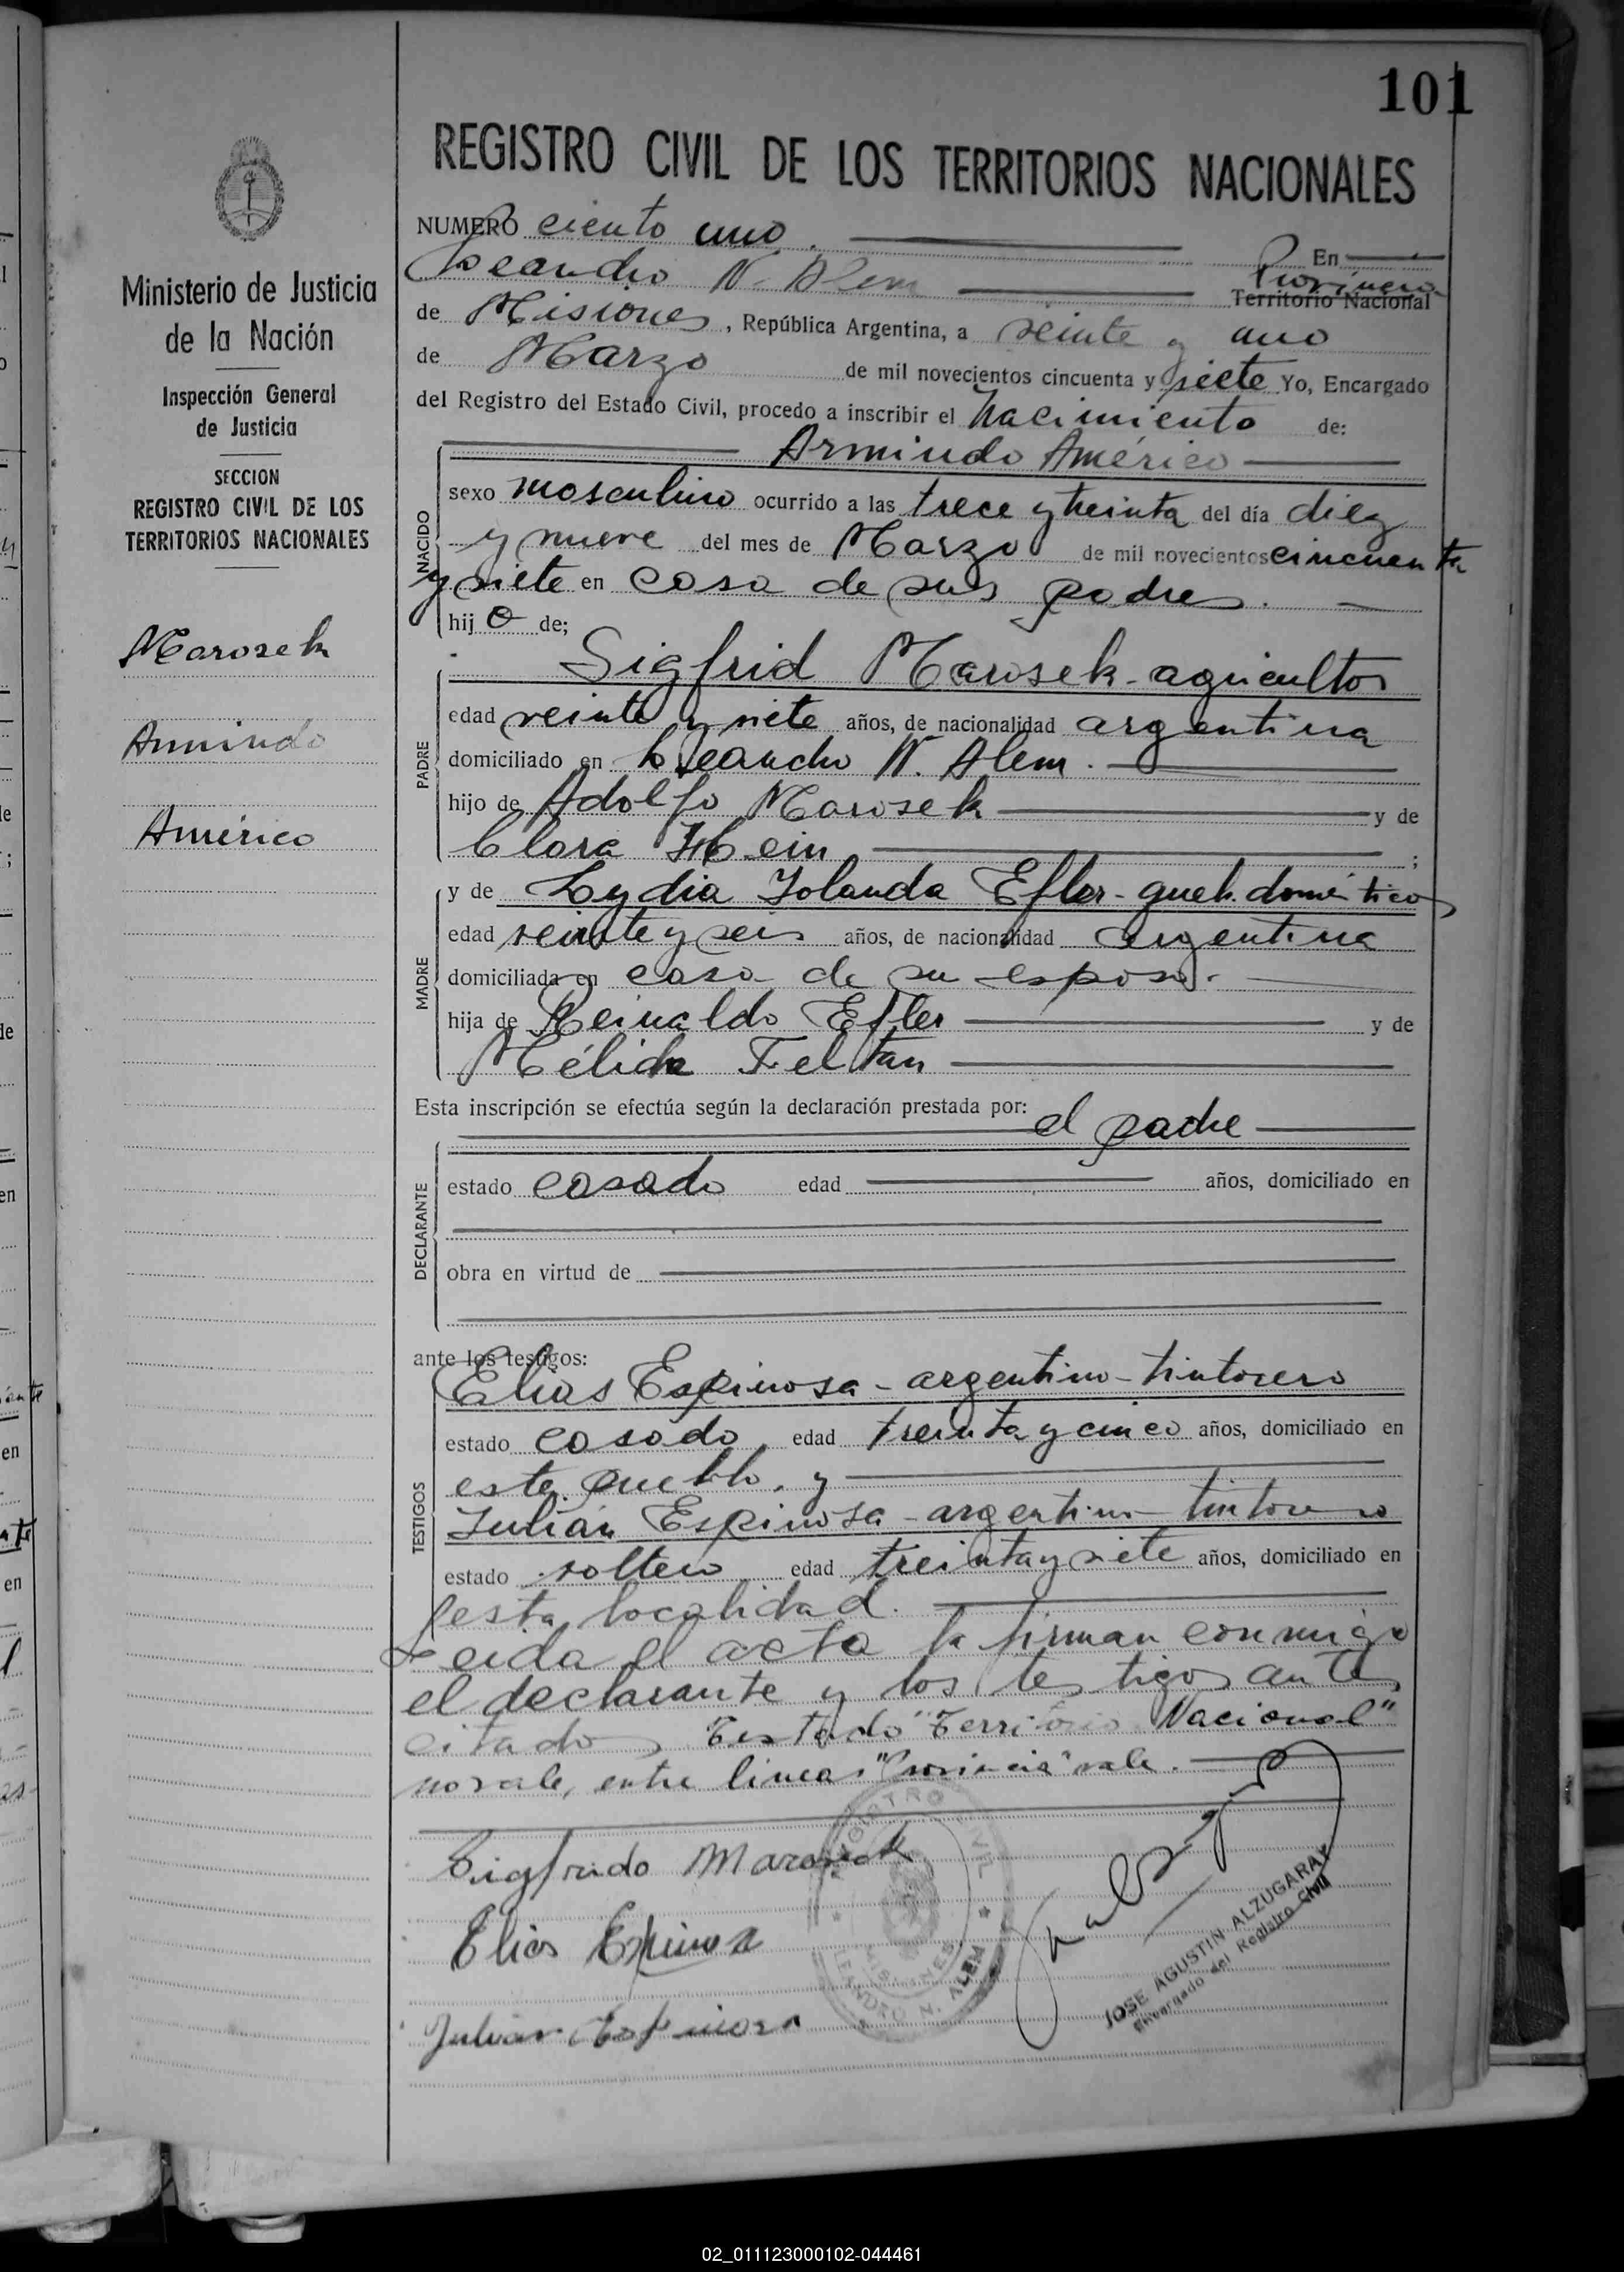 101
REGISTRO CIVIL DE LOS TERRITORIOS NACIONALES
Ministerio de Justicia
de la Nación
Inspección General
de Justicia
SECCION
REGISTRO CIVIL DE LOS
TERRITORIOS NACIONALES
Marosek
Armindo
Américo
NUMERO ciento uno. En
Leandro N. Alem Provincia Territorio Nacional
de Misiones, República Argentina, a veinte y uno
de Marzo de mil novecientos cincuenta y siete Yo, Encargado
del Registro del Estado Civil, procedo a inscribir el nacimiento de:
Armindo Américo
NACIDO
sexo masculino ocurrido a las trece y treinta del día diez
y nueve del mes de Marzo de mil novecientos cincuenta
y siete en casa de sus padres.
hijo de;
Sigfrid Marosek - agricultor
PADRE
edad veinte y siete años, de nacionalidad argentina
domiciliado en Leandro N. Alem.
hijo de Adolfo Marosek y de
Clara Hein ;
y de Lydia Yolanda Efler - queh. domésticos
MADRE
edad veinte y seis años, de nacionalidad argentina
domiciliada en casa de su esposo.
hija de Reinaldo Efler y de
Mélida Feltan
Esta inscripción se efectúa según la declaración prestada por: el padre
DECLARANTE
estado casado edad años, domiciliado en
obra en virtud de
ante los testigos:
Elias Espinosa - argentino - tintorero
TESTIGOS
estado casado edad treinta y cinco años, domiciliado en
este pueblo, y
Julián Espinosa - argentino - tintorero
estado soltero edad treinta y siete años, domiciliado en
esta localidad.
Leida el acta la firman conmigo
el declarante y los testigos antes
citados Testado "Territorio Nacional"
no vale, entre lineas "Provincia" vale.
Sigfrido Marosek
Elias Espinosa
Julian Espinosa
REGISTRO CIVIL
MISIONES
LEANDRO N. ALEM
JOSE AGUSTIN ALZUGARAY
Encargado del Registro Civil
02_011123000102-044461